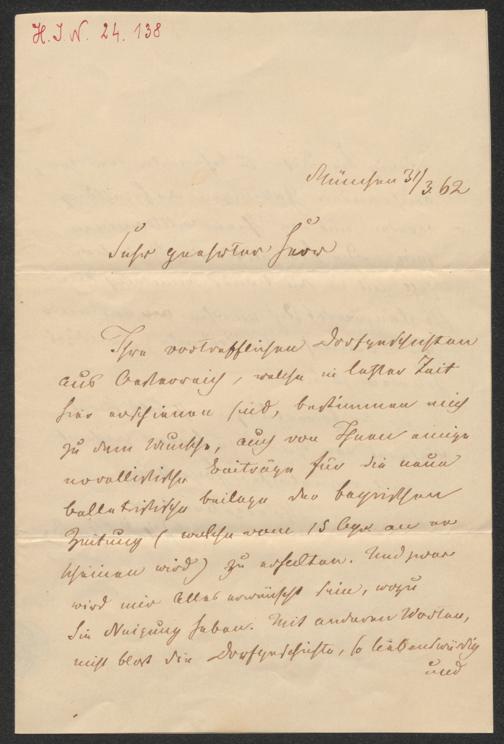 H. I. N. 24. 138
München 31/3. 62
Sehr geehrter Herr
Ihre vortrefflichen Dorfgeschichten
aus Oesterreich, welche in letzter Zeit
hier erschienen sind, bestimmen mich
zu dem Wunsche, auch von Ihnen einige
novellistische Beiträge für die neue
belletristische Beilage der bayrischen
Zeitung (welche vom 15 Apr an er
scheinen wird) zu erhalten. Und zwar
wird mir Alles erwünscht sein, wozu
Sie Neigung haben. Mit anderen Worten,
nicht blos die Dorfgeschichte, so liebenswürdig
und